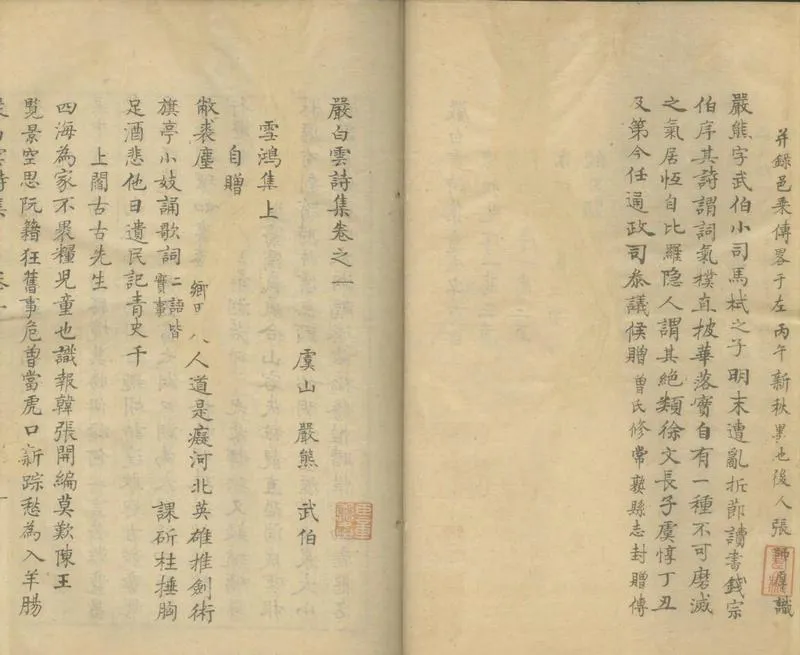 并錄邑乘傳畧于左丙午新秋也後人張識
嚴熊字武伯小司馬栻之子明末遭亂折節讀書錢宗
伯序其詩謂詞氣樸直披華落實自有一種不可磨滅
之氣居恆自比羅隐人謂其絶類徐文長子虞惇丁丑
及第今任通政司叅議候贈 曾氏修常熟縣志封贈傳
嚴白雲詩集卷之一
虞山嚴熊 武伯
雪鴻集上
自贈
敝裘塵 鄉 人道是癡河北英雄推劍術
旗亭小妓誦歌詞 二語皆實事 課斫柱捶胸
足酒悲他日遺民記青史千
上閻古古先生
四海為家不裹糧児童也識報韓張開編莫歎陳王
覧景空思阮籍狂舊事危曾當虎口新踪愁為入羊腸